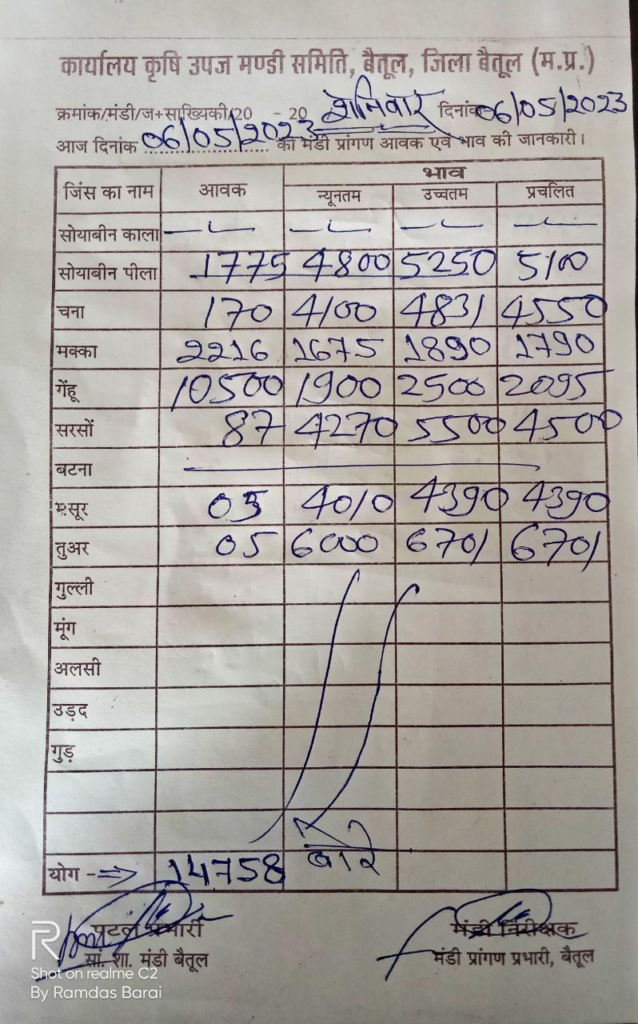 कार्यालय कृषि उपज मण्डी समिति, बैतूल, जिला बैतूल (म.प्र.)
क्रमांक/मंडी/ज+सांख्यिकी/20 - 20 शनिवार दिनांक 06/05/2023
आज दिनांक 06/05/2023 को मंडी प्रांगण आवक एवं भाव की जानकारी।
जिंस का नाम आवक भाव
न्यूनतम उच्चतम प्रचलित
सोयाबीन काला — — — —
सोयाबीन पीला 1775 4800 5250 5100
चना 170 4100 4831 4550
मक्का 2216 1675 1890 1790
गेंहू 10500 1900 2500 2095
सरसों 87 4270 5500 4500
बटना
मसूर 05 4010 4390 4390
तुअर 05 6000 6701 6701
गुल्ली
मूंग
अलसी
उड़द
गुड़
योग 14758 बोरे
पटल प्रभारी मंडी निरीक्षक
सां. शा. मंडी बैतूल मंडी प्रांगण प्रभारी, बैतूल
R
Shot on realme C2
By Ramdas Barai